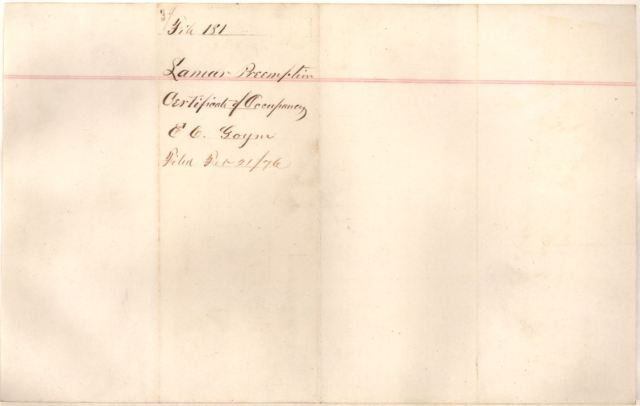 3
File 181
Lamar Preemption
Certificate of Occupancy
E. C.
Filed Feb 21/76